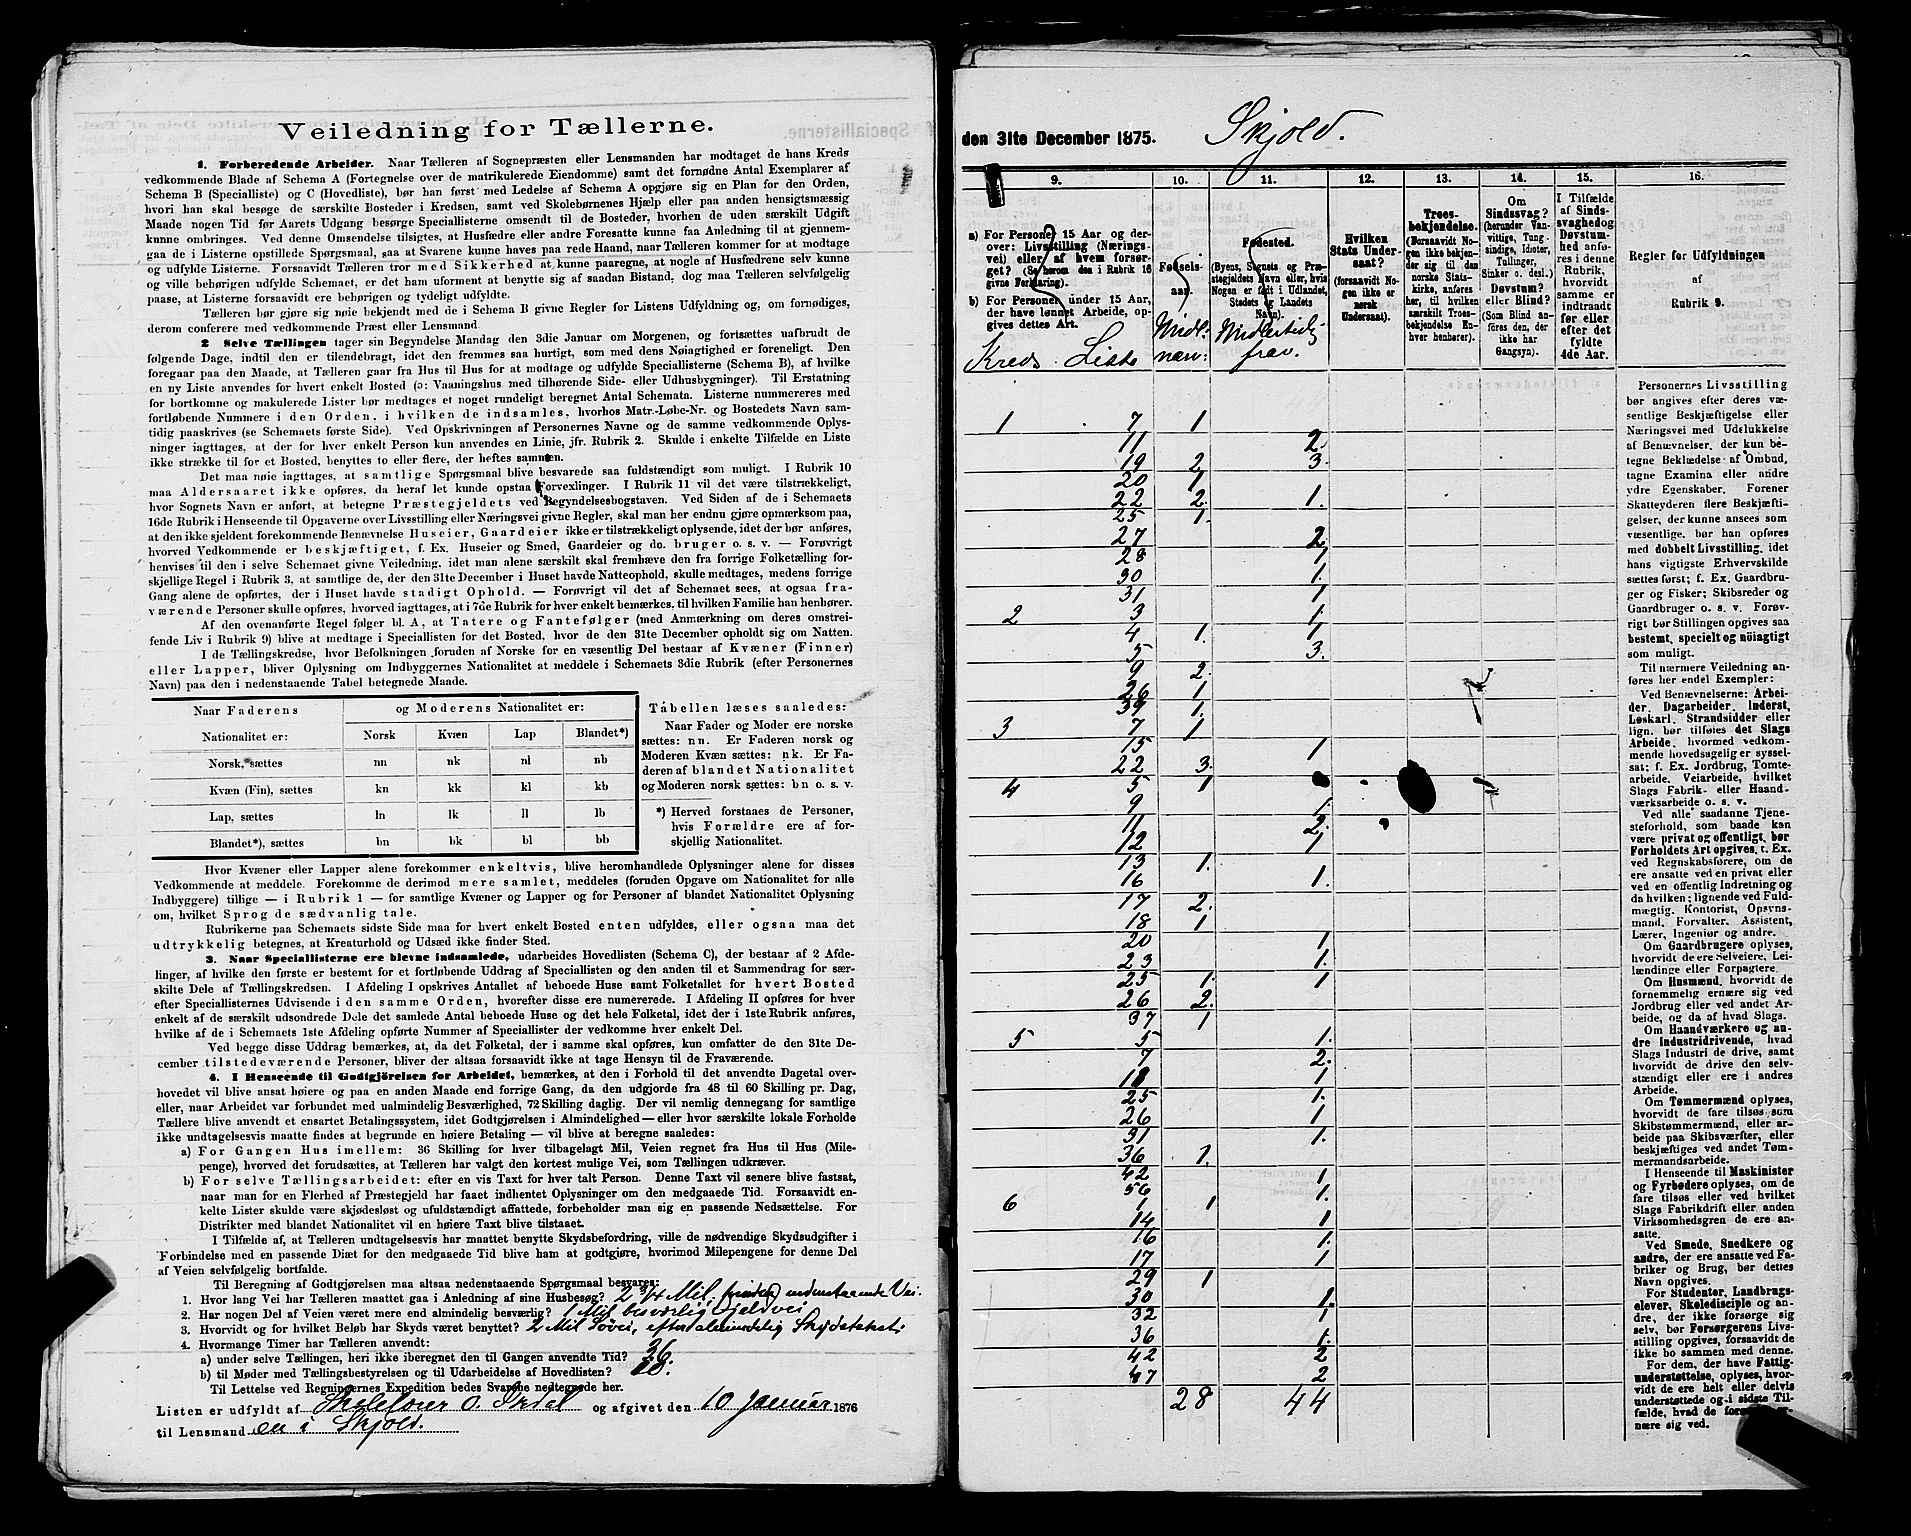 Veiledning for Tællerne.
1. Forberedende Arbeider. Naar Tælleren af Sognepræsten eller Lensmanden har modtaget de hans Kreds
vedkommende Blade af Schema A (Fortegnelse over de matrikulerede Eiendomme) samt det fornødne Antal Exemplarer af
Schema B (Specialliste) og C (Hovedliste), bør han først med Ledelse af Schema A opgjøre sig en Plan for den Orden,
hvori han skal besøge de særskilte Bosteder i Kredsen, samt ved Skolebørnenes Hjælp eller paa anden hensigtsmæssig
Maade nogen Tid før Aarets Udgang besørge Speciallisterne omsendt til de Bosteder, hvorhen de uden særskilt Udgift
kunne ombringes. Ved denne Omsendelse tilsigtes, at Husfædre eller andre Foresatte kunne faa Anledning til at gjennem-
gaa de i Listerne opstillede Spørgsmaal, saa at Svarene kunne haves paa rede Haand, naar Tælleren kommer for at modtage
og udfylde Listerne. Forsaavidt Tælleren tror med Sikkerhed at kunne paaregne, at nogle af Husfædrene selv kunne
og ville behørigen udfylde Schemaet, er det ham uforment at benytte sig af saadan Bistand, dog maa Tælleren selvfølgelig
paase, at Listerne forsaavidt ere behørigen og tydeligt udfyldte.
Tælleren bør gjøre sig nøie bekjendt med de i Schema B givne Regler for Listens Udfyldning og, om fornødiges,
derom conferere med vedkommende Præst eller Lensmand
2 Selve Tællingen tager sin Begyndelse Mandag den 3die Januar om Morgenen, og fortsættes uafbrudt de
følgende Dage, indtil den er tilendebragt, idet den fremmes saa hurtigt, som med dens Nøiagtighed er foreneligt. Den
foregaar paa den Maade, at Tælleren gaar fra Hus til Hus for at modtage og udfylde Speciallisterne (Schema B), af hvilke
en ny Liste anvendes for hvert enkelt Bosted (ɔ: Vaaningshus med tilhørende Side- eller Udhusbygninger). Til Erstatning
for bortkomne og makulerede Lister bør medtages et noget rundeligt beregnet Antal Schemata. Listerne nummereres med
fortløbende Nummere i den Orden, i hvilken de indsamles, hvorhos Matr.-Løbe-Nr. og Bostedets Navn sam-
tidig paaskrives (se Schemaets første Side). Ved Opskrivningen af Personernes Navne og de samme vedkommende Oplys-
ninger iagttages, at der for hver enkelt Person kun anvendes en Linie, jfr. Rubrik 2. Skulde i enkelte Tilfælde en Liste
ikke strække til for et Bosted, benyttes to eller flere, der heftes sammen.
Det maa nøie iagttages, at samtlige Spørgsmaal blive besvarede saa fuldstændigt som muligt. I Rubrik 10
maa Aldersaaret ikke opføres, da heraf let kunde opstaa Forvexlinger. I Rubrik 11 vil det være tilstrækkeligt,
hvor Sognets Navn er anført, at betegne Præstegjeldets ved Begyndelsesbogstaven. Ved Siden af de i Schemaets
16de Rubrik i Henseende til Opgaverne over Livsstilling eller Næringsvei givne Regler, skal man her endnu gjøre opmærksom paa,
at den ikke sjeldent forekommende Benævnelse Huseier, Gaardeier ikke er tilstrækkeligt oplysende, idet der bør anføres,
hvorved Vedkommende er beskjæftiget, f. Ex. Huseier og Smed, Gaardeier og do. bruger o. s. v. — Forøvrigt
henvises til den i selve Schemaet givne Veiledning, idet man alene særskilt skal fremhæve den fra forrige Folketælling for-
skjellige Regel i Rubrik 3, at samtlige de, der den 31te December i Huset havde Natteophold, skulle medtages, medens forrige
Gang alene de opførtes, der i Huset havde stadigt Ophold. — Forøvrigt vil det af Schemaet sees, at ogsaa fra-
værende Personer skulle opføres, hvorved iagttages, at i 7de Rubrik for hver enkelt bemærkes, til hvilken Familie han henhører.
Af den ovenanførte Regel følger bl. A, at Tatere og Fantefølger (med Anmærkning om deres omstrei-
fende Liv i Rubrik 9) blive at medtage i Speciallisten for det Bosted, hvor de den 31te December opholdt sig om Natten.
I de Tællingskredse, hvor Befolkningen foruden af Norske for en væsentlig Del bestaar af Kvæner (Finner)
eller Lapper, bliver Oplysning om Indbyggernes Nationalitet at meddele i Schemaets 3die Rubrik (efter Personernes
Navn) paa den i nedenstaaende Tabel betegnede Maade.
Naar Faderens og Moderens Nationalitet er:
Nationalitet er: Norsk Kvæn Lap Blandet*)
Norsk, sættes nn nk nl nb
Kvæn (Fin), sættes kn kk kl kb
Lap, sættes ln lk ll lb
Blandet*), sættes bn bk bl bb
Tabellen læses saaledes:
Naar Fader og Moder ere norske
sættes: nn. Er Faderen norsk og
Moderen Kvæn sættes: nk. Er Fa-
deren af blandet Nationalitet
og Moderen norsk sættes: bn o. s. v.
*) Herved forstaaes de Personer,
hvis Forældre ere af for-
skjellig Nationalitet.
Hvor Kvæner eller Lapper alene forekommer enkeltvis, blive heromhandlede Oplysninger alene for disses
Vedkommende at meddele. Forekomme de derimod mere samlet, meddeles (foruden Opgave om Nationalitet for alle
Indbyggere) tillige — i Rubrik 1 — for samtlige Kvæner og Lapper og for Personer af blandet Nationalitet Oplysning
om, hvilket Sprog de sædvanlig tale.
Rubrikerne paa Schemaets sidste Side maa for hvert enkelt Bosted enten udfyldes, eller ogsaa maa det
udtrykkelig betegnes, at Kreaturhold og Udsæd ikke finder Sted.
3. Naar Speciallisterne ere blevne indsamlede, udarbeides Hovedlisten (Schema C), der bestaar af 2 Afde-
linger, af hvilke den første er bestemt for et fortløbende Uddrag af Speciallisten og den anden til et Sammendrag for sær-
skilte Dele af Tællingskredsen. I Afdeling I opskrives Antallet af beboede Huse samt Folketallet for hvert Bosted
efter Speciallisternes Udvisende i den samme Orden, hvorefter disse ere numererede. I Afdeling II opføres for hver
enkelt af de særskilt udsondrede Dele det samlede Antal beboede Huse og det hele Folketal, idet der i 1ste Rubrik anføres,
hvilke af de i Schemaets 1ste Afdeling opførte Nummer af Speciallister der vedkomme hver enkelt Del.
Ved begge disse Uddrag bemærkes, at, da det Folketal, der i samme skal opføres, kun omfatter de den 31te De-
cember tilstedeværende Personer, bliver der altsaa forsaavidt ikke at tage Hensyn til de Fraværende.
4. I Henseende til Godtgjörelsen for Arbeidet, bemærkes, at den i Forhold til det anvendte Dagetal over-
hovedet vil blive ansat høiere og paa en anden Maade end forrige Gang, da den udgjorde fra 48 til 60 Skilling pr. Dag,
eller, naar Arbeidet var forbundet med ualmindelig Besværlighed, 72 Skilling daglig. Der vil nemlig dennegang for samtlige
Tællere blive anvendt et ensartet Betalingssystem, idet Godtgjørelsen i Almindelighed — eller hvor særskilte lokale Forholde
ikke undtagelsesvis maatte findes at begrunde en høiere Betaling — vil blive at beregne saaledes:
a) For Gangen Hus imellem: 36 Skilling for hver tilbagelagt Mil, Veien regnet fra Hus til Hus (Mile-
penge), hvorved det forudsættes, at Tælleren har valgt den kortest mulige Vei, som Tællingen udkræver.
b) For selve Tællingsarbeidet: efter en vis Taxt for hver talt Person. Denne Taxt vil senere blive fastsat,
naar man for en Flerhed af Præstegjeld har faaet indhentet Oplysninger om den medgaaede Tid. Forsaavidt en-
kelte Lister skulde være skjødesløst og ufuldstændigt affattede, forbeholder man sig en passende Nedsættelse. For
Distrikter med blandet Nationalitet vil en høiere Taxt blive tilstaaet.
I Tilfælde af, at Tælleren undtagelsesvis har maattet benytte Skydsbefordring, ville de nødvendige Skydsudgifter i
Forbindelse med en passende Diæt for den medgaaede Tid blive ham at godtgjøre, hvorimod Milepengene for denne Del
af Veien selvfølgelig bortfalde.
Til Beregning af Godtgjørelsen maa altsaa nedenstaaende Spørgsmaal besvares:
1. Hvor lang Vei har Tælleren maattet gaa i Anledning af sine Husbesøg? 2 3/4 Mil. foruden undenstaaende Vei.
2. Har nogen Del af Veien været mere end almindelig besværlig? 1 Mil besværlig Fjeldvei
3. Hvorvidt og for hvilket Beløb har Skyds været benyttet? 2 Mil Søvei, efter almindelig Skydstakst:
4. Hvormange Timer har Tælleren anvendt:
a) under selve Tællingen, heri ikke iberegnet den til Gangen anvendte Tid? 36.
b) til Møder med Tællingsbestyrelsen og til Udarbeidelse af Hovedlisten?
Til Lettelse ved Regningernes Expedition bedes Svarene nedtegnede her.
Listen er udfyldt af og afgivet den 10 Januar 1876
til Lensmand en i Skjold.
den 31te December 1875. Skjold.
9. 10. 11. 12. 13. 14. 15. 16.
a) For Personer 15 Aar og der-
over: Livsstilling (Nærings-
vei) eller af hvem forsør-
get? (Se herom den i Rubrik 16
givne Forklaring).
b) For Personer under 15 Aar,
der have lønnet Arbeide, op-
gives dettes Art.
Kreds Liste
Fødsels-
aar.
Midl:
nærv:
Fødested.
(Byens, Sognets og Præ-
stegjeldets Navn eller, hvis
Nogen er født i Udlandet,
Stedets og Landets
Navn).
Midlertidig
frav.
Hvilken
Stats Under-
saat?
(forsaavidt No-
gen ikke er
norsk
Undersaat).
Troes-
bekjendelse.
(Forsaavidt No-
gen ikke bekjen-
der sig til den
norske Stats-
kirke, anføres
her, til hvilken
særskilt Troes-
bekjendelse En-
hver henhører).
Om
Sindssvag?
(herunder Van-
vittige, Tung-
sindige, Idioter,
Tullinger,
Sinker o. desl.)
Døvstum?
eller Blind?
(Som Blind an-
føres den, der
ikke har
Gangsyn).
I Tilfælde
af Sinds-
svaghed og
Døvstum-
hed anfø-
res i denne
Rubrik,
hvorvidt
samme er
indtraadt
før eller
efter det
fyldte
4de Aar.
Regler for Udfyldningen
af
Rubrik 9.
1 7 1
11 2
19 2 3
20 1
22 2. 1.
25 1.
27 2
28 1
30 1.
31 1
2 3 1.
4 1. 1
5 3.
9 2.
26 1
39 1.
3 7 1
15 1
22 3.
4 5 1
9 1.
11 2.
12 1
13 1.
16 1.
17 2.
18 1
20 1
23 1.
25 1. 1
26 2.
37 1
5 5 1.
7 2.
18 1
25 1.
26 1
31 1.
36 1.
42 1
56 1.
6 1 1
14 1
16 1.
17 1
29 1
30 1.
32 1
36 1.
42 2
47 2
28 44
Personernes Livsstilling
bør angives efter deres væ-
sentlige Beskjæftigelse eller
Næringsvei med Udelukkelse
af Benævnelser, der kun be-
tegne Beklædelse af Ombud,
tagne Examina eller andre
ydre Egenskaber. Forener
Skatteyderen flere Beskjæfti-
gelser, der kunne ansees som
væsentlige, bør han opføres
med dobbelt Livsstilling, idet
hans vigtigste Erhvervskilde
sættes først; f. Ex. Gaardbru-
ger og Fisker; Skibsreder og
Gaardbruger o. s. v. Forøv-
rigt bør Stillingen opgives saa
bestemt, specielt og nöiagtigt
som muligt.
Til nærmere Veiledning an-
føres her endel Exempler:
Ved Benævnelserne: Arbei-
der, Dagarbeider, Inderst,
Løskarl, Strandsidder eller
lign. bør tilføies det Slags
Arbeide, hvormed vedkom-
mende hovedsagelig er syssel-
sat; f. Ex. Jordbrug, Tomte-
arbeide, Veiarbeide, hvilket
Slags Fabrik- eller Haand-
værksarbeide o. s. v.
Ved alle saadanne Tjene-
steforhold, som baade kan
være privat og offentligt, bør
Forholdets Art opgives, f. Ex.
ved Regnskabsførere, om de
ere ansatte ved en privat eller
ved en offentlig Indretning og
da hvilken; lignende ved Fuld-
mægtig, Kontorist, Opsyns-
mand, Forvalter, Assistent,
Lærer, Ingeniør og andre.
Om Gaardbrugere oplyses,
hvorvidt de ere Selveiere, Lei-
lændinge eller Forpagtere.
Om Husmænd, hvorvidt de
fornemmelig ernære sig ved
Jordbrug eller ved andet Ar-
beide, og da af hvad Slags.
Om Haandværkere og an-
dre Industridrivende, hvad
Slags Industri de drive, samt
hvorvidt de drive den selv-
stændigt eller ere i andres
Arbeide.
Om Tømmermænd oplyses,
hvorvidt de fare tilsøs som
Skibstømmermænd, eller ar-
beide paa Skibsværfter, eller
beskjæftiges ved andet Tøm-
mermandsarbeide.
I Henseende til Maskinister
og Fyrbødere oplyses, om de
fare tilsøs eller ved hvilket
Slags Fabrikdrift eller anden
Virksomhedsgren de ere an-
satte.
Ved Smede, Snedkere og
andre, der ere ansatte ved Fa-
briker og Brug, bør dettes
Navn opgives.
For Studenter, Landbrugs-
elever, Skoledisciple og an-
dre, der ikke forsørge sig
selv, bør Forsørgerens Livs-
stilling opgives, forsaavidt de
ikke bo sammen med denne.
For dem, der have Fattig-
understøttelse, oplyses, hvor-
vidt de ere helt eller delvis
understøttede og i sidste Til-
fælde, hvad de forøvrigt er-
nære sig ved.